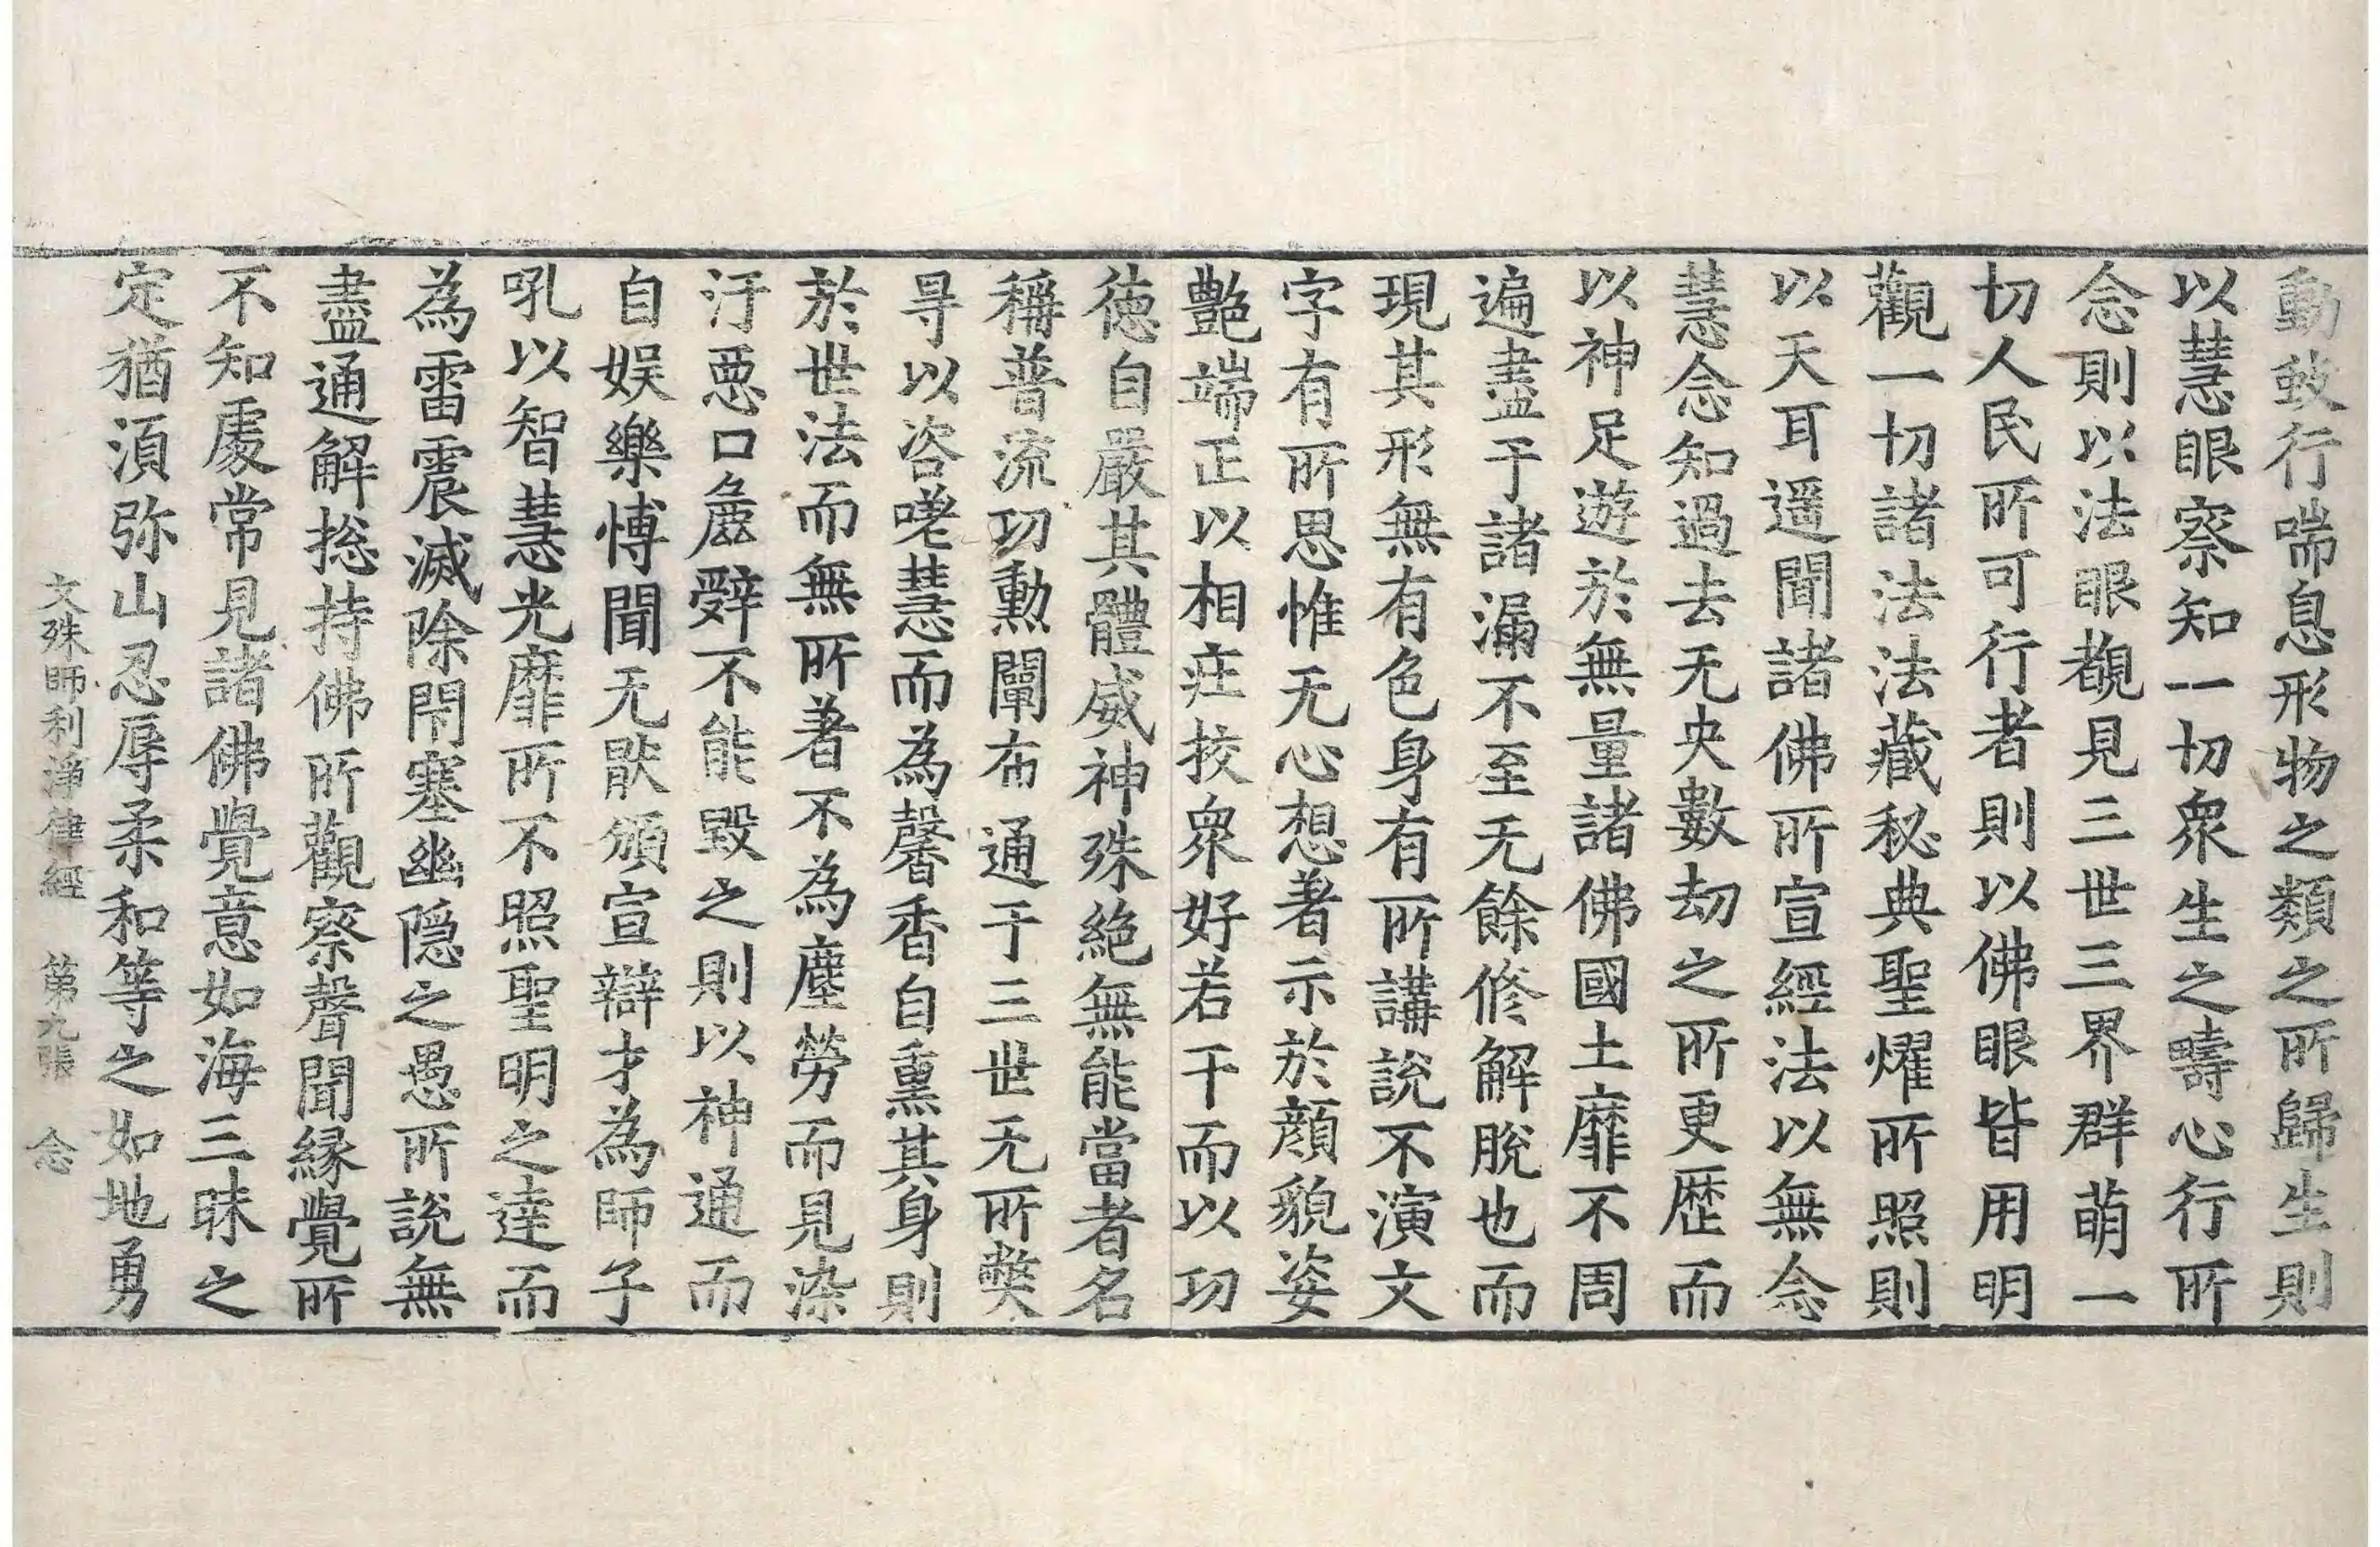 動蚑行喘息形物之類之所歸生則
以慧眼察知一切衆生之疇心行所
念則以法眼覩見三世三界群萌一
切人民所可行者則以佛眼皆用明
觀一切諸法法藏秘典聖燿所照則
以天耳遥聞諸佛所宣經法以無念
慧念知過去无央數劫之所更歷而
以神足遊於無量諸佛國土靡不周
遍盡于諸漏不至无餘修解脫也而
現其形無有色身有所講說不演文
字有所思惟无心想著示於顔貌姿
艷端正以相庄挍衆好若干而以功
德自嚴其體威神殊絶無能當者名
稱普流功勳闡布通于三世无所弊
㝵以咨嗟慧而為馨香自熏其身則
於世法而無所著不為塵勞而見染
汙惡口麁辝不能毀之則以神通而
自娱樂博聞无猒頒宣辯才為師子
吼以智慧光靡所不照聖明之達而
為雷震滅除閇塞幽隠之愚所說無
盡通解捴持佛所觀察聲聞縁覺所
不知處常見諸佛覺意如海三昧之
定猶湏弥山忍辱柔和等之如地勇
文殊師利淨律經　第九張　念